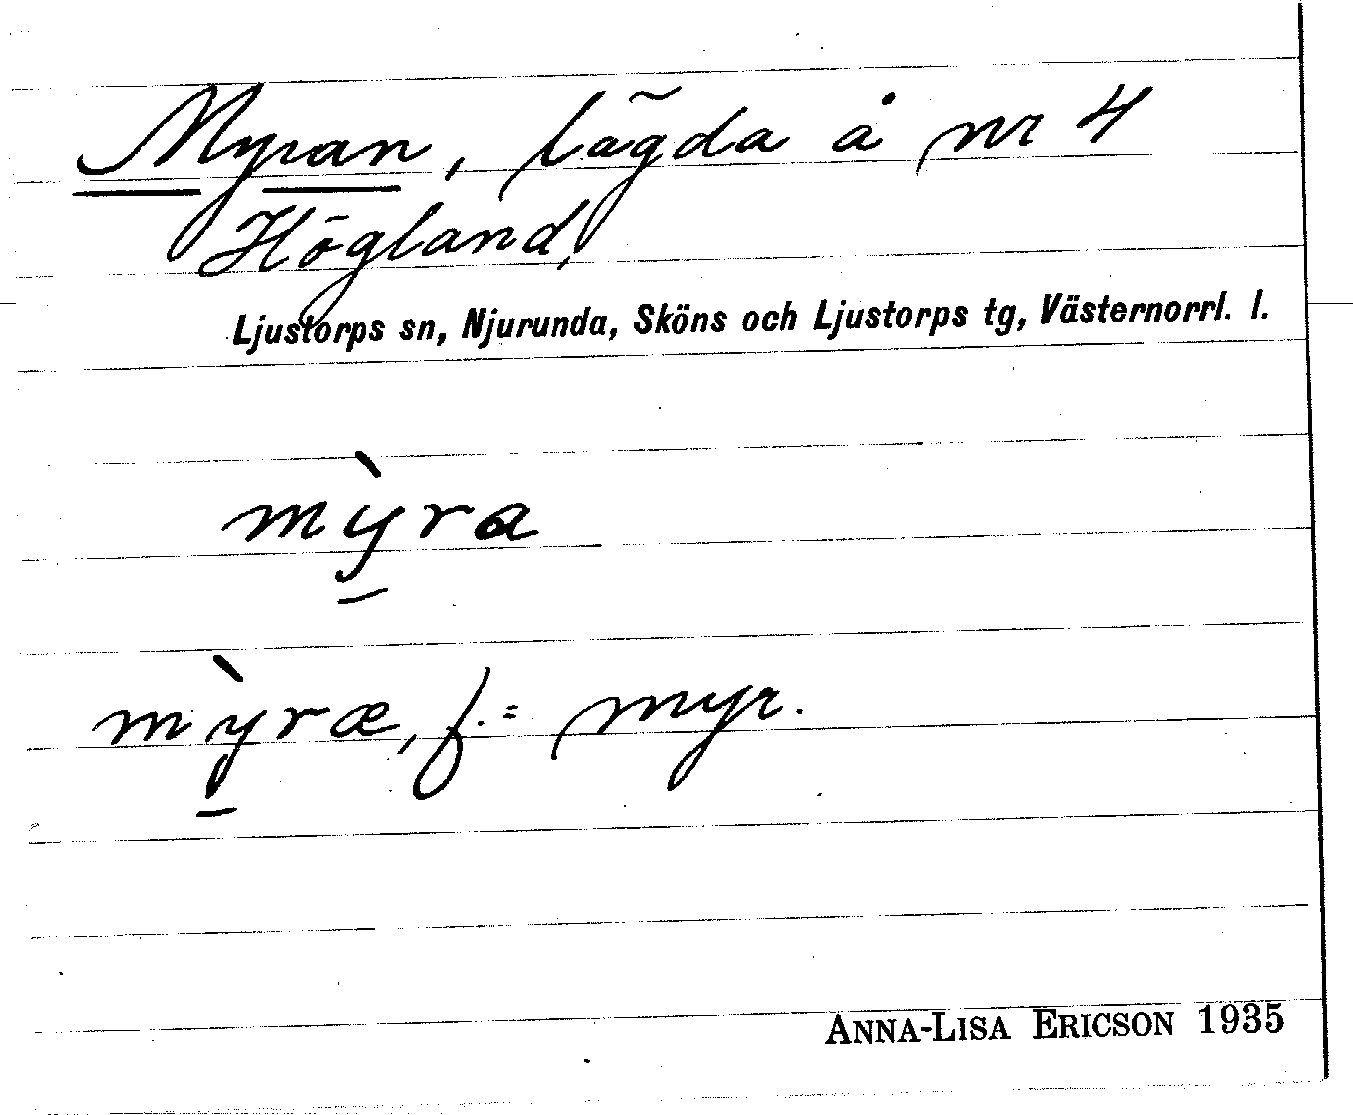 Myran, lägda å nr 4
Högland,
Ljustorps sn, Njurunda, Sköns och Ljustorps tg, Västernorrl. l.
mỳ̱ra
mỳ̱ræ, f. = myr.
ANNA-LISA ERICSON 1935